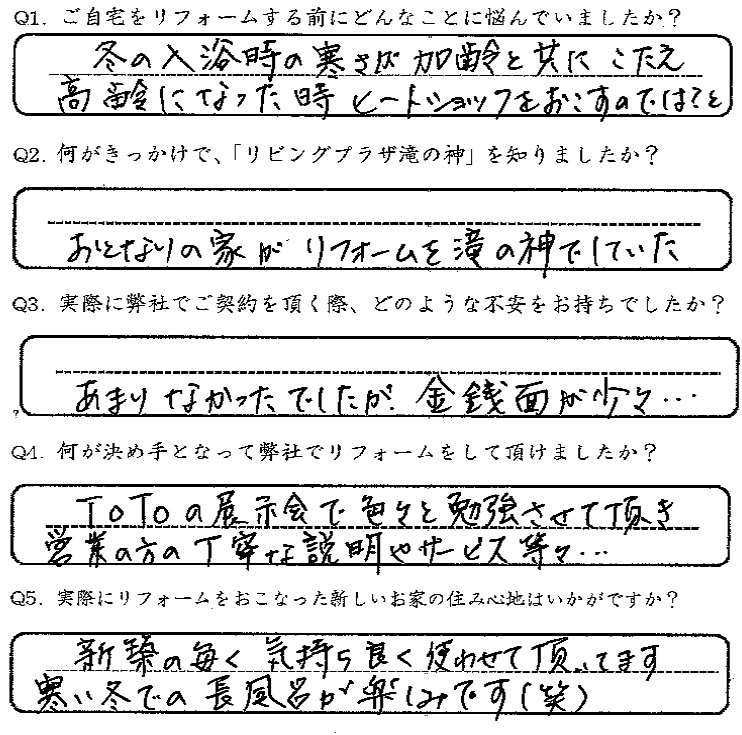 Q1. ご自宅をリフォームする前にどんなことに悩んでいましたか？
冬の入浴時の寒さが加齢と共にこたえ
高齢になった時ヒートショックをおこすのでは？と
Q2. 何がきっかけで、「リビングプラザ滝の神」を知りましたか？
おとなりの家がリフォームを滝の神でしていた
Q3. 実際に弊社でご契約を頂く際、どのような不安をお持ちでしたか？
あまりなかったでしたが、金銭面が少々…
Q4. 何が決め手となって弊社でリフォームをして頂けましたか？
TOTOの展示会で色々と勉強させて頂き
営業の方の丁寧な説明やサービス等々…
Q5. 実際にリフォームをおこなった新しいお家の住み心地はいかがですか？
新築の毎く気持ち良く使わせて頂いてます
寒い冬での長風呂が楽しみです(笑)